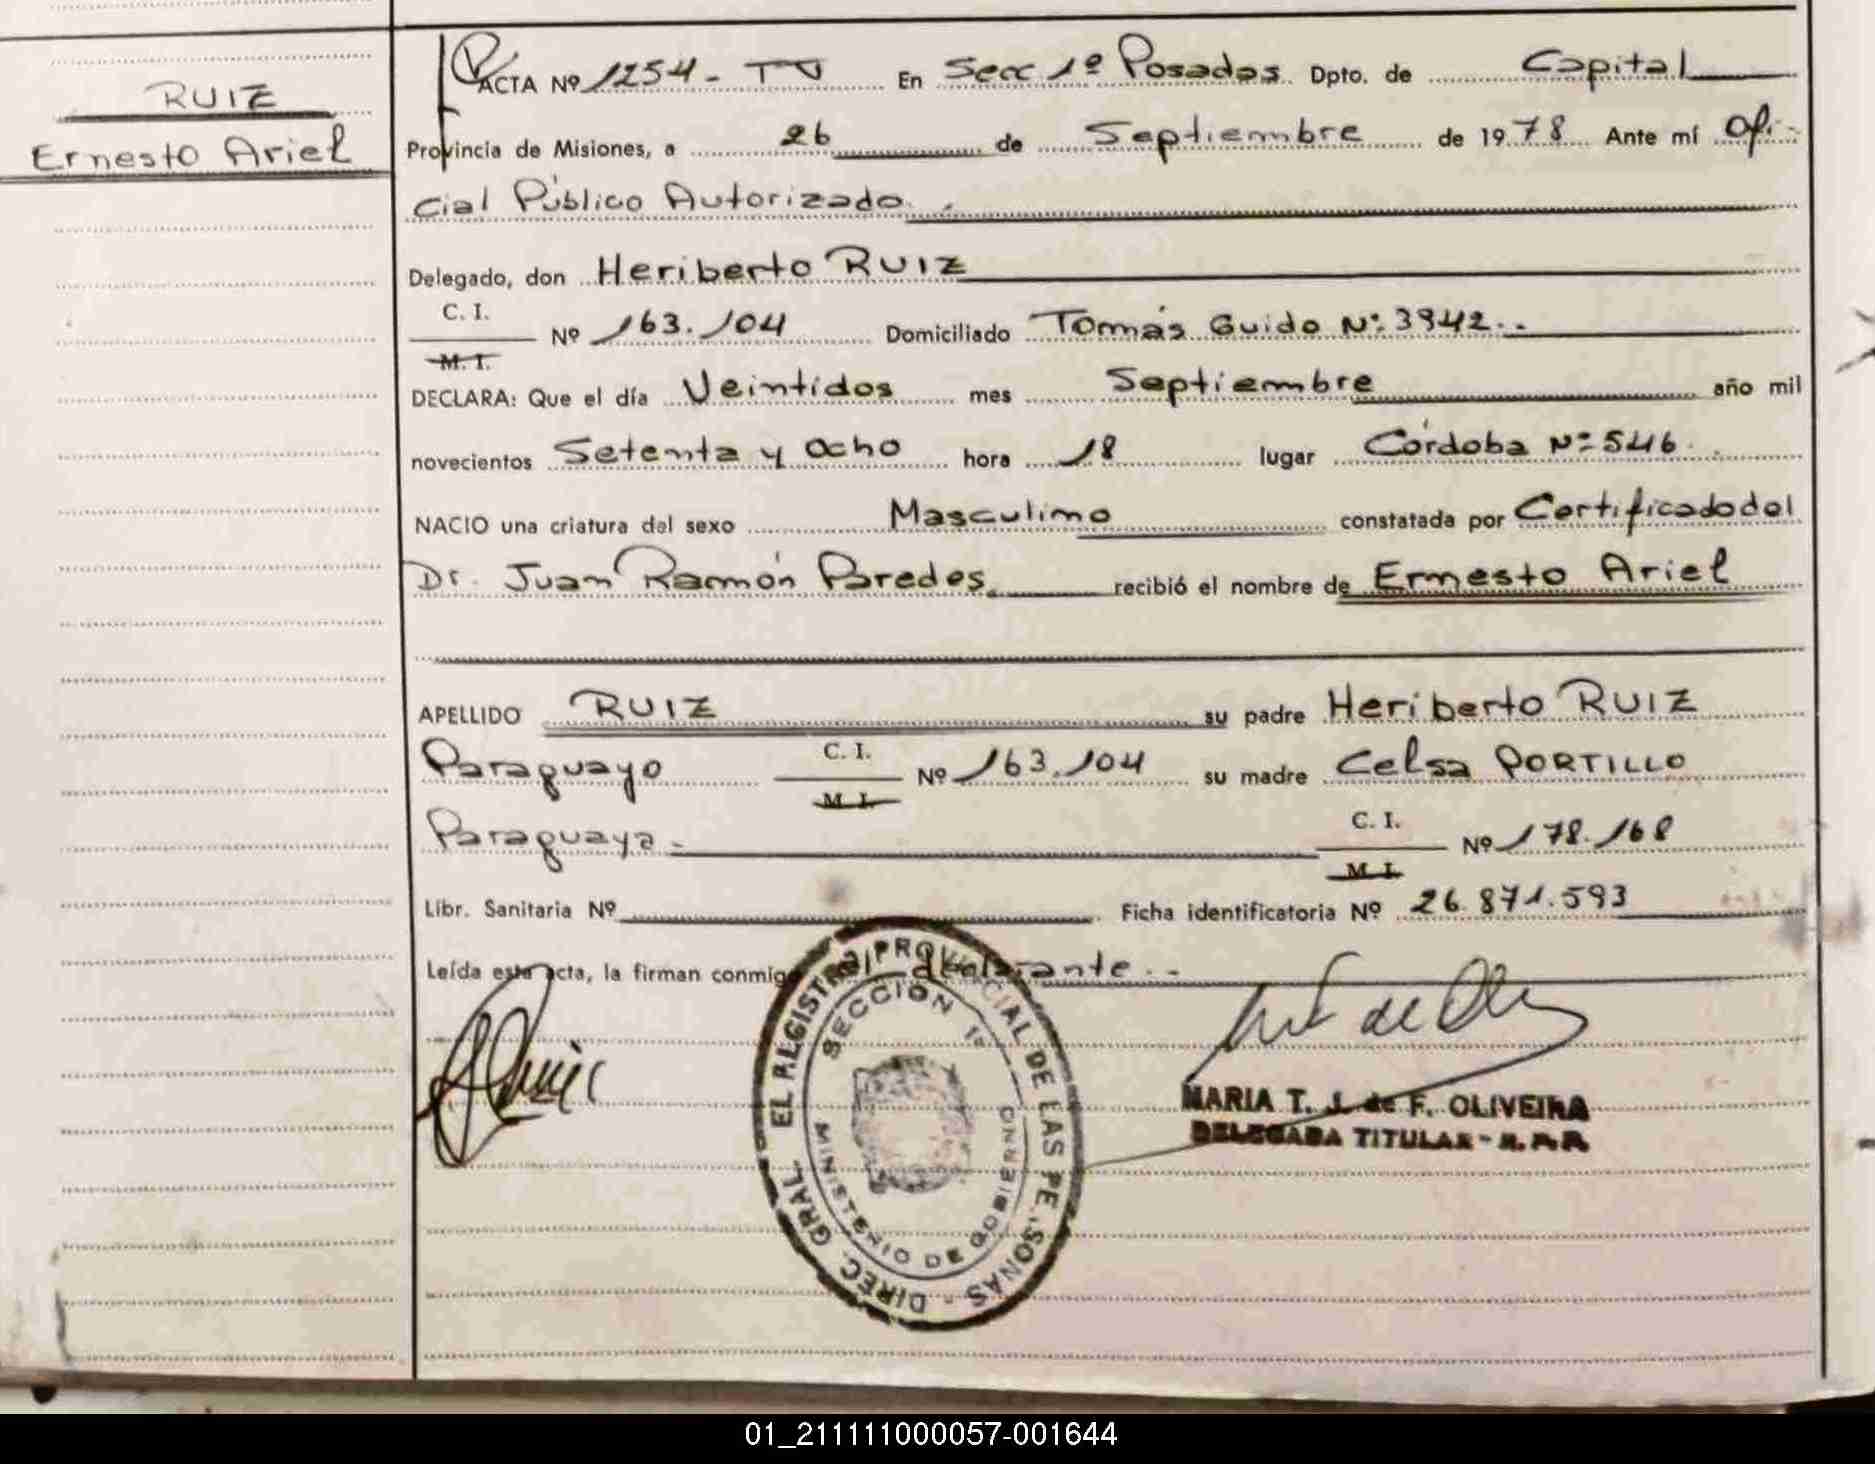 RUIZ
Ernesto Ariel
ACTA Nº 1254 - TV En Secc 1º Posadas Dpto. de Capital
Provincia de Misiones, a 26 de Septiembre de 1978 Ante mí Ofi-
cial Público Autorizado.
Delegado, don Heriberto RUIZ
C. I.
Nº 163.104 Domiciliado Tomás Guido Nº 3942..
M. I.
DECLARA: Que el día Veintidos mes Septiembre año mil
novecientos Setenta y Ocho hora 18 lugar Córdoba Nº 546.
NACIO una criatura del sexo Masculino constatada por Certificado del
Dr. Juan Ramón Paredes. recibió el nombre de Ernesto Ariel
APELLIDO RUIZ su padre Heriberto RUIZ
Paraguayo C. I. Nº 163.104 su madre Celsa PORTILLO
M. I.
Paraguaya. C. I. Nº 178.168
M. I.
Libr. Sanitaria Nº Ficha identificatoria Nº 26.871.593
Leída esta acta, la firman conmigo el declarante..
DIREC. GRAL. EL REGISTRO PROVINCIAL DE LAS PERSONAS -
SECCION 1ª
MINISTERIO DE GOBIERNO
MARIA T. J. de F. OLIVEIRA
DELEGADA TITULAR - R. P. P.
01_211111000057-001644